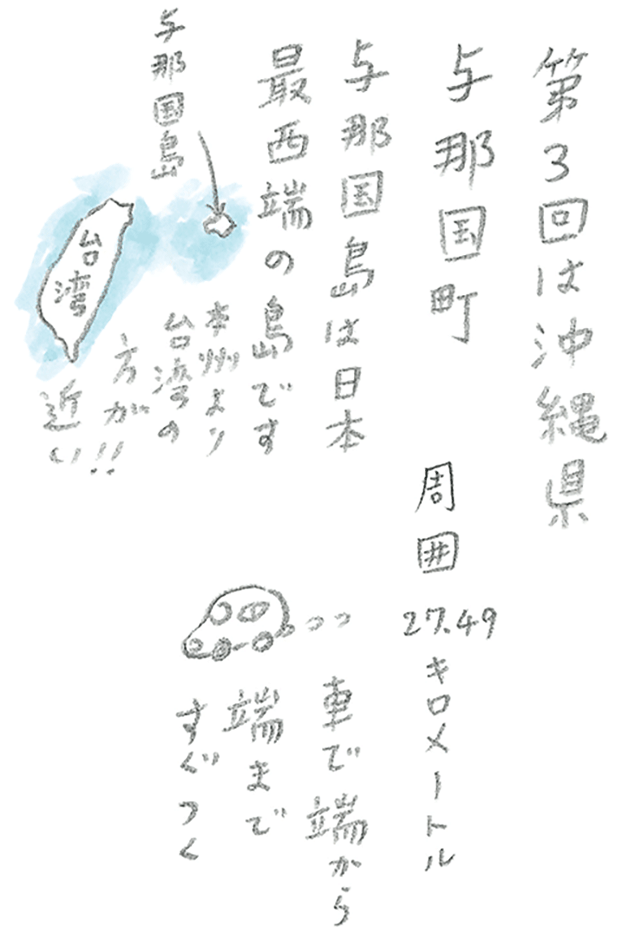 第3回は沖縄県
与那国町
与那国島は日本
最西端の島です
本州より
台湾の
方が!!
近い
与那国島
台湾
周囲
27.49
キロメートル
車で端から
端まで
すぐつく